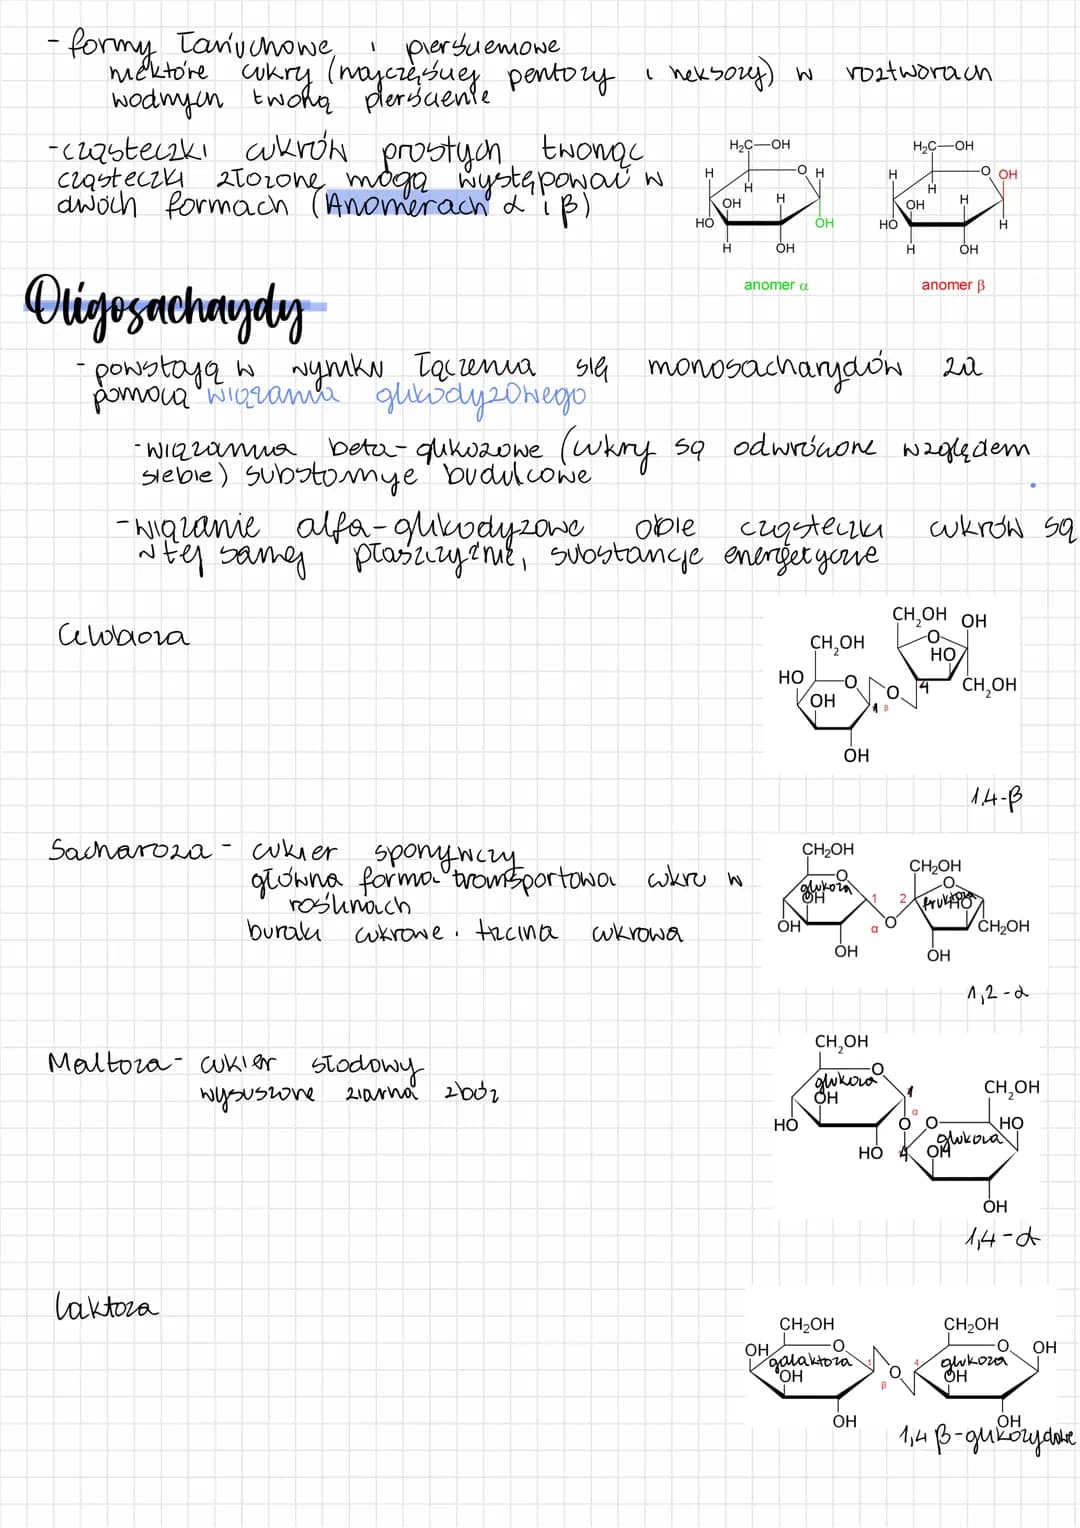 - formy łańcuchowe i pierścieniowe
niektóre cukry (najczęściej pentozy i heksozy) w roztworach
wodnych tworzą pierścienie
- cząsteczki cukrów prostych tworząc
cząsteczki złożone mogą występować w
dwóch formach (Anomerach α i β)
H₂C—OH
H O H
H
OH H
HO OH
H OH
anomer α
H₂C—OH
H O OH
H
OH H
HO H
H OH
anomer β
Oligosachaydy
- powstają w wyniku łączenia się monosacharydów za
pomocą wiązania glikodyzowego
- wiązannia beta-glikozowe (cukry są odwrócone względem
siebie) substancje budulcowe
- wiązanie alfa-glikodyzowe obie cząsteczki cukrów są
w tej samej płaszczyźnie, substancje energetyczne
Celobioza
CH₂OH OH
CH₂OH O
HO
HO O O 4 CH₂OH
OH 1 β
OH
1,4-β
Sacharoza - cukier spożywczy
główna forma transportowa cukru w
roślinach
buraki cukrowe i trzcina cukrowa
CH₂OH
CH₂OH
O O
glukoza fruktoza
OH 1 2 HO
OH α O CH₂OH
OH OH
1,2-α
Maltoza - cukier słodowy
wysuszone ziarna zbóż
CH₂OH
O
glukoza
OH 1 CH₂OH
α
HO O O HO
HO 4 OH glukoza
OH
1,4-α
Laktoza
CH₂OH CH₂OH
OH O O OH
galaktoza 1 4 glukoza
OH O OH
β
OH OH
1,4 β-glikozydowe